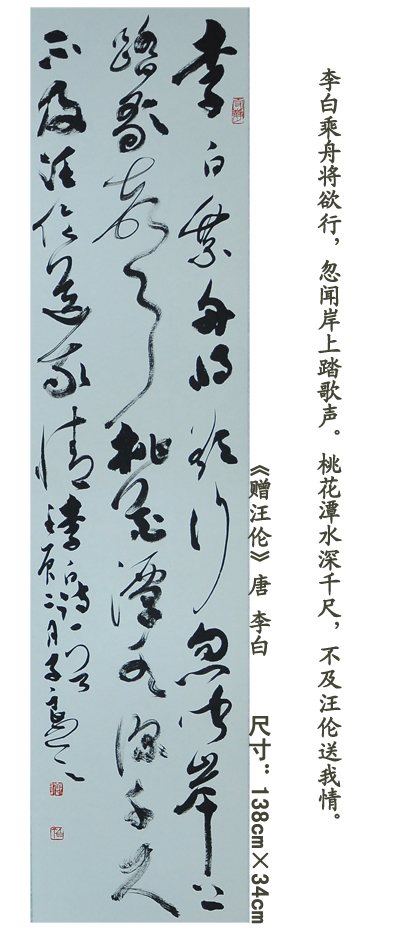 李白乘舟将欲行，忽闻岸上踏歌声。桃花潭水深千尺，不及汪伦送我情。
《赠汪伦》唐 李白 尺寸：138cm×34cm
李白乘舟将欲行忽闻岸上
踏歌声桃花潭水深千尺
不及汪伦送我情李白诗一首
壬辰二月